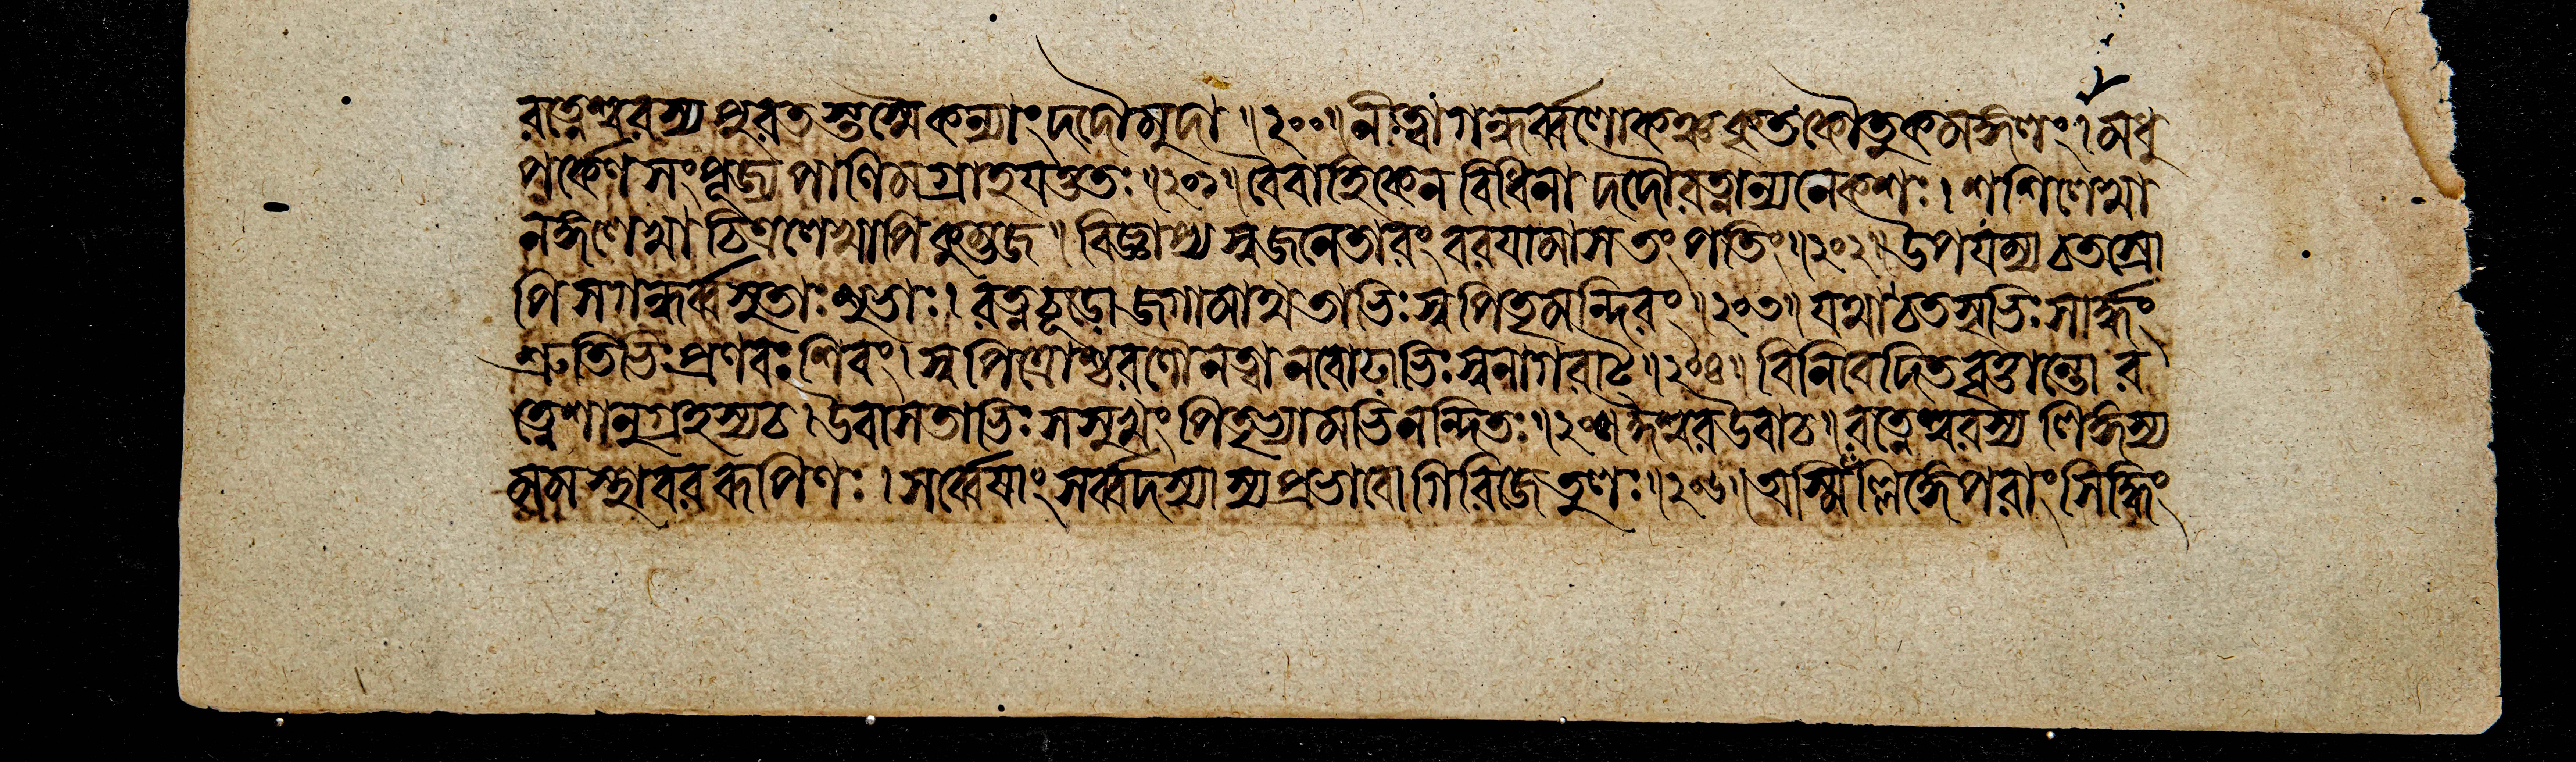 রত্নেশ্বরস্য পুরতস্তস্মৈ কন্যাং দদৌ মুদা ॥২০০॥ নীত্বা গন্ধর্ব্বলোকঞ্চ কৃতকৌতুকমঙ্গলং। মধু
পর্কেণ সংপূজ্য পাণিমগ্রাহযত্ততঃ ॥২০১॥ বৈবাহিকেন বিধিনা দদৌ রত্নান্যনেকশঃ। শশিলেখা
নঙ্গলেখা চিত্রলেখাপি কুম্ভজ॥ বিজ্ঞাপ্য স্বজনেতারং বরযামাস তং পতিং॥২০২॥ উপযম্য চতস্রো
পি স গন্ধর্ব্বসুতাঃ শুভাঃ। রত্নচূডো জগামাথ তাভিঃ স্বপিতৃমন্দিরং ॥২০৩॥ যথা চতসৃভিঃ সার্দ্ধং
শ্রুতিভিঃ প্রণবঃ শিবং। স্বপিত্রোশ্চরণৌ নত্বা নবোঢাভিঃ স্বনাগরাট্ ॥২০৪॥ বিনিবেদিতবৃত্তান্তো র
ত্নেশানুগ্রহস্য চ। উবাস তাভিঃ সসুখং পিতৃভ্যামভিনন্দিতঃ ॥২০৫॥ ঈশ্বর উবাচ॥ রত্নেশ্বরস্য লিঙ্গস্য
মম স্থাবররূপিণঃ। সর্ব্বেষাং সর্ব্বদস্যাস্য প্রভাবো গিরিজেতুলঃ ॥২০৬॥ অস্মিঁল্লিঙ্গে পরাং সিদ্ধিং